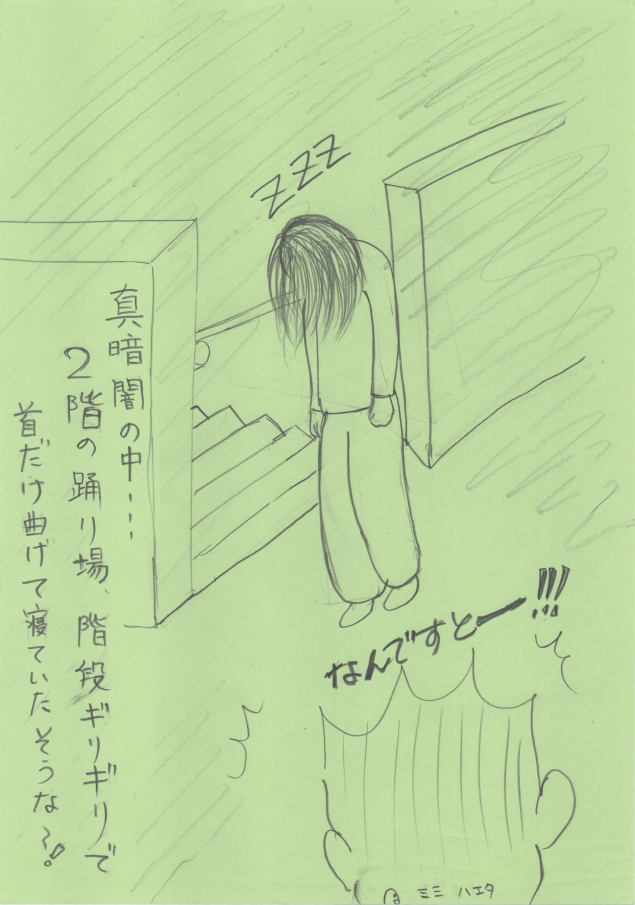 ZZZ
真暗闇の中…
2階の踊り場、階段ギリギリで
首だけ曲げて寝ていたそうな〜!
なんですとー!!!
ミミ ハエタ